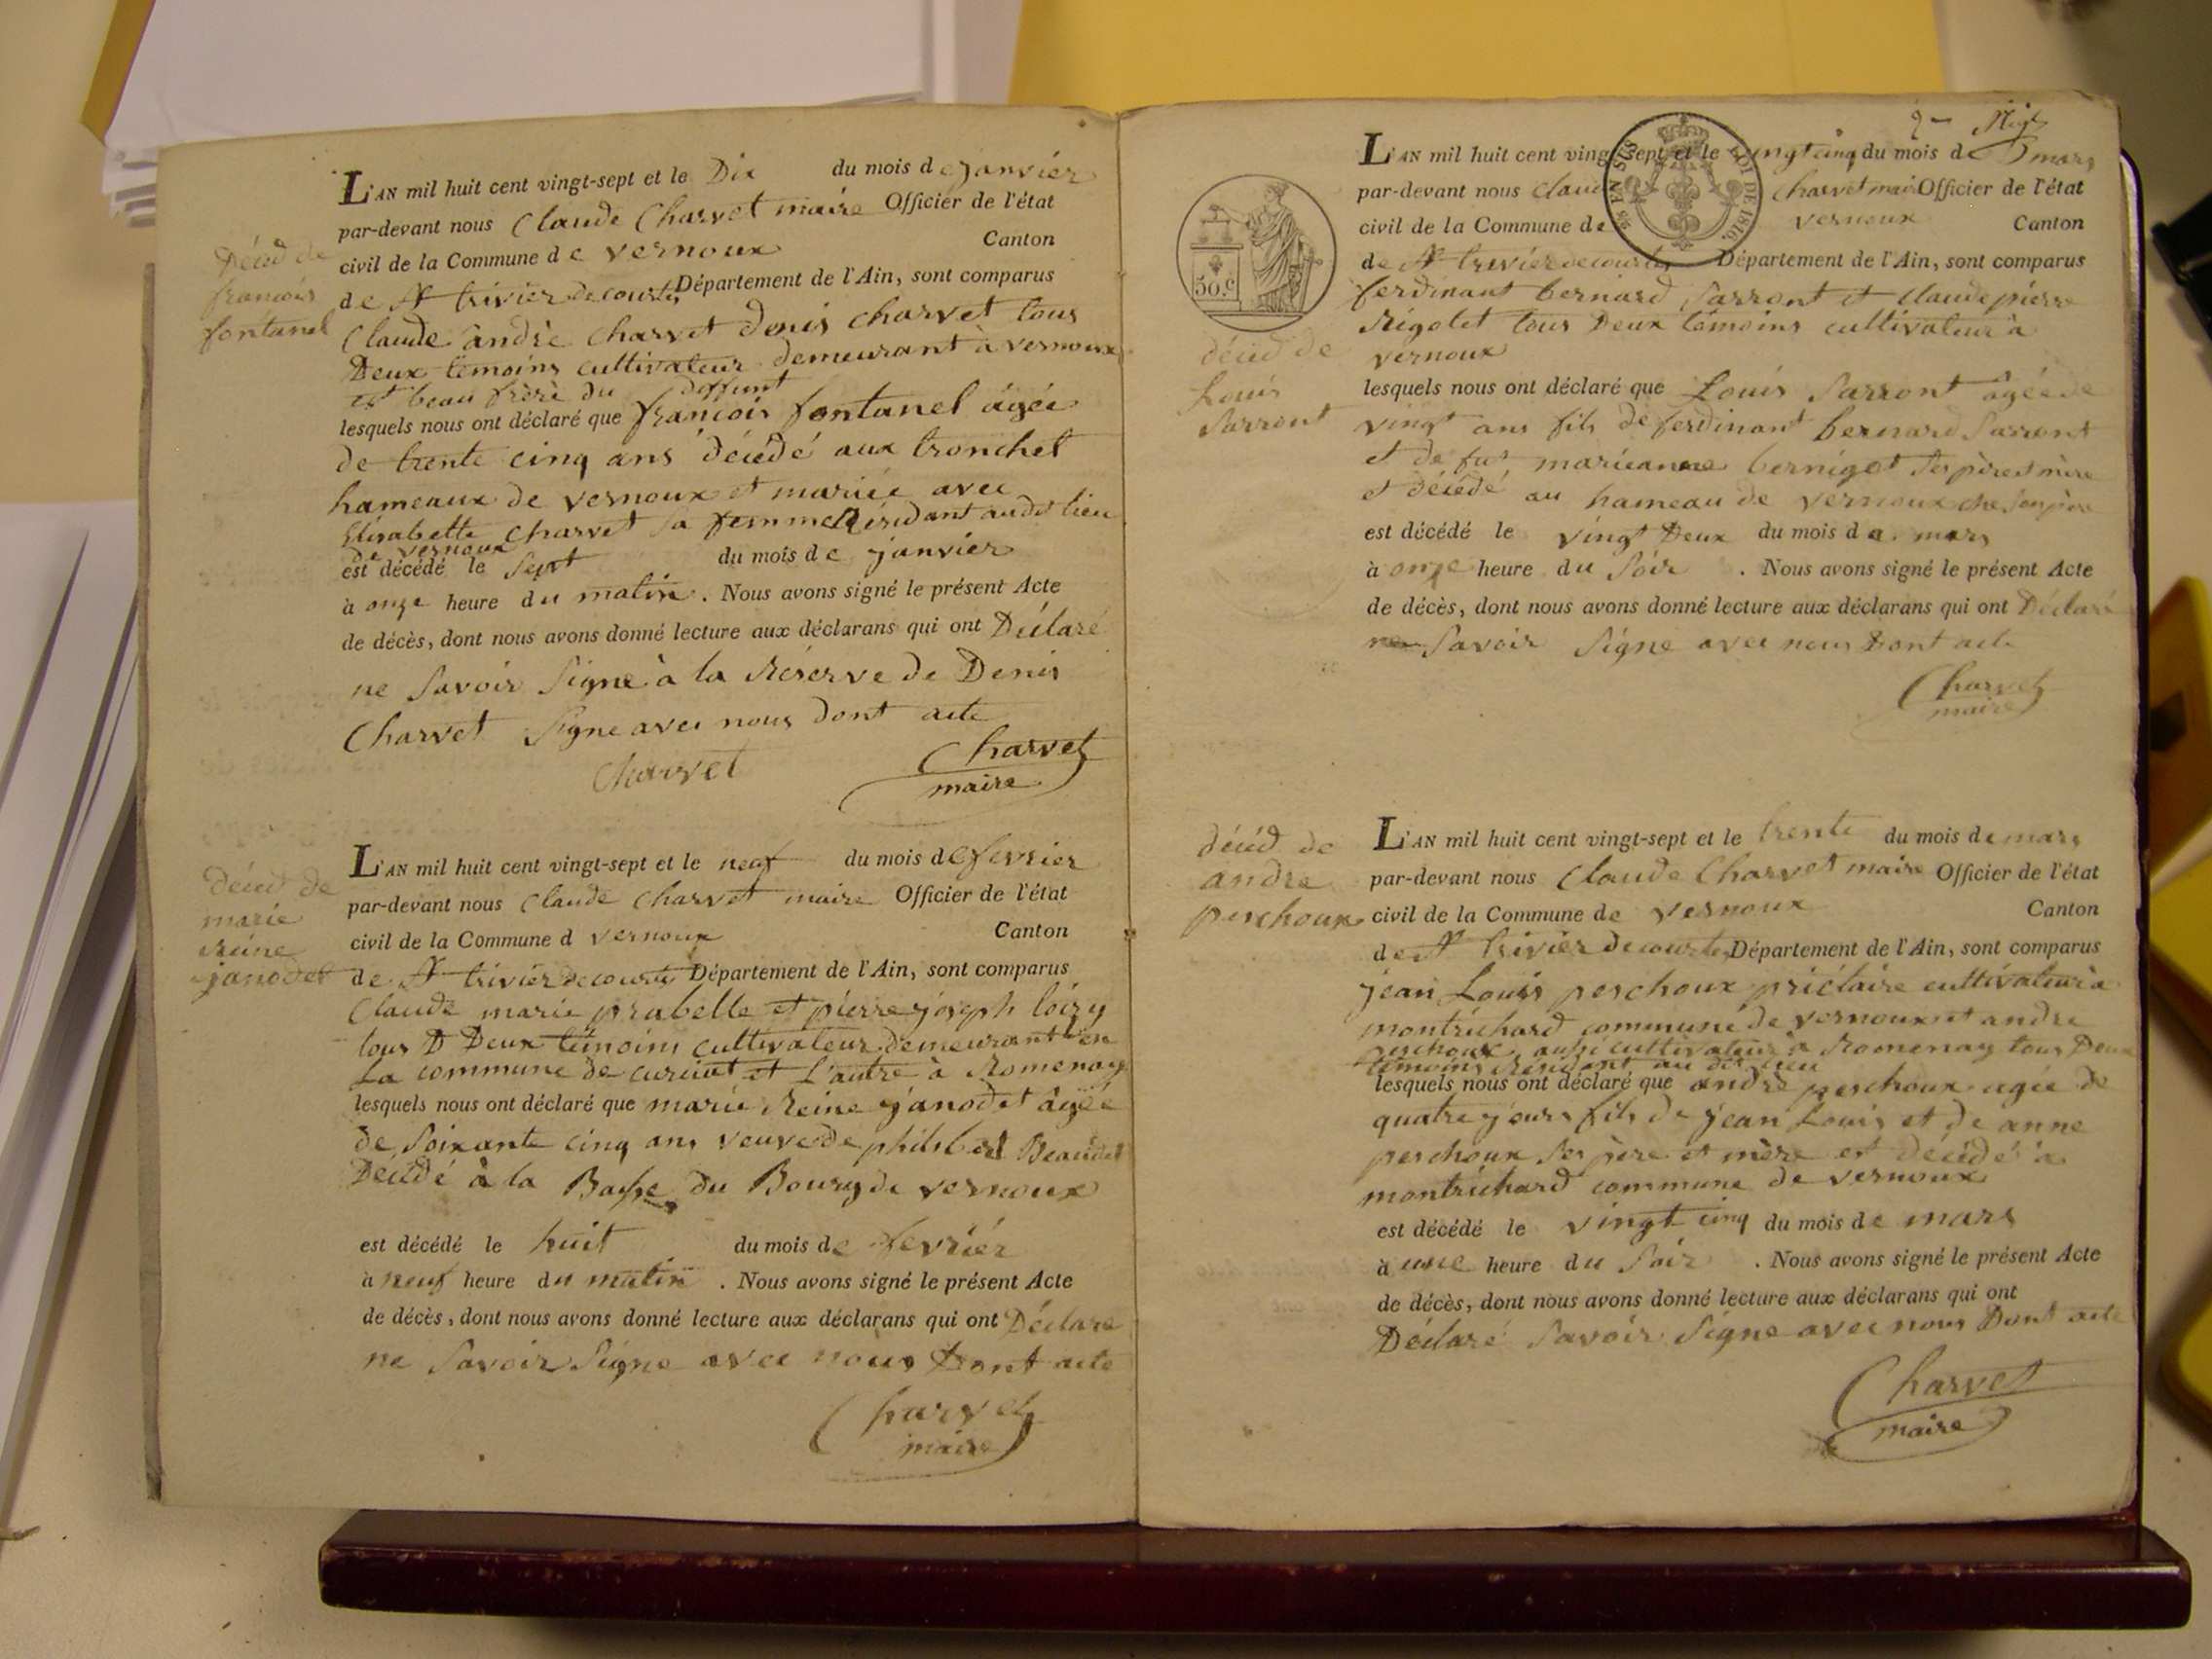 Décéd de
francois
fontanel
L'AN mil huit cent vingt-sept et le Dix du mois de janvier
par-devant nous Claude Charvet maire Officier de l'état
civil de la Commune de vernoux Canton
de St trivier de courtes Département de l'Ain, sont comparus
Claude andrè Charvet denis charvet tous
Deux temoins cultivateur demeurant à vernoux
est beau frère du deffunt
lesquels nous ont déclaré que francois fontanel âgée
de trente cinq ans décédé aux tronchet
hameaux de vernoux et mariée avec
Elisabette Charvet sa femme Résidant audit lieu
de vernoux
est décédé le Sept du mois de janvier
à onze heure du matin. Nous avons signé le présent Acte
de décès, dont nous avons donné lecture aux déclarans qui ont Déclaré
ne Savoir Signe à la Réserve de Denis
Charvet Signe avec nous dont acte
Charvet
Charvet
maire
décéd de
marie
reine
janodet
L'AN mil huit cent vingt-sept et le neuf du mois de fevrier
par-devant nous Claude Charvet maire Officier de l'état
civil de la Commune d vernoux Canton
de St trivier de courtes Département de l'Ain, sont comparus
Claude marie prabelle et pierre joseph loizy
tous D Deux témoins cultivateur demeurant en
La commune de curciat et L'autre à Romenay
lesquels nous ont déclaré que marie Reine janodet âgée
de Soixante cinq ans veuve de philibert Beaudet
Décédé à la Basse du Bourg de vernoux
est décédé le huit du mois de fevrier
à neuf heure du matin. Nous avons signé le présent Acte
de décès, dont nous avons donné lecture aux déclarans qui ont Déclare
ne Savoir Signe avec nous Dont acte
Charvet
maire
2
L'AN mil huit cent vingt-sept et le vingt cinq du mois de mars
par-devant nous Claude Charvet maire Officier de l'état
civil de la Commune de vernoux Canton
de St trivier de courtes Département de l'Ain, sont comparus
EN SUS
LOI DE 1816.
50.c
ferdinant bernard Sarront et Claude pierre
Rigolet tous Deux témoins cultivateur à
vernoux
décéd de
Louis
Sarront
lesquels nous ont déclaré que Louis Sarront âgée de
vingt ans fils de ferdinant bernard Sarront
et de fut marieanne bernigot Ses père et mère
et décédé au hameau de vernoux che son père
est décédé le vingt Deux du mois de mars
à onze heure du Soir. Nous avons signé le présent Acte
de décès, dont nous avons donné lecture aux déclarans qui ont Déclaré
ne Savoir Signe avec nous Dont acte
Charvet
maire
décéd de
andre
perchoux
L'AN mil huit cent vingt-sept et le trente du mois de mars
par-devant nous Claude Charvet maire Officier de l'état
civil de la Commune de vernoux Canton
de St trivier de courtes Département de l'Ain, sont comparus
jean Louis perchoux priétaire cultivateur à
montrichard commune de vernoux et andre
perchoux aussi cultivateur à Romenay tous Deux
témoins Résidant au dit lieu
lesquels nous ont déclaré que andré perchoux agée de
quatre jours fils de jean Louis et de anne
perchoux Ses père et mère et décédé à
montrichard commune de vernoux
est décédé le vingt cinq du mois de mars
à une heure du Soir. Nous avons signé le présent Acte
de décès, dont nous avons donné lecture aux déclarans qui ont
Déclaré Savoir Signe avec nous Dont acte
Charvet
maire